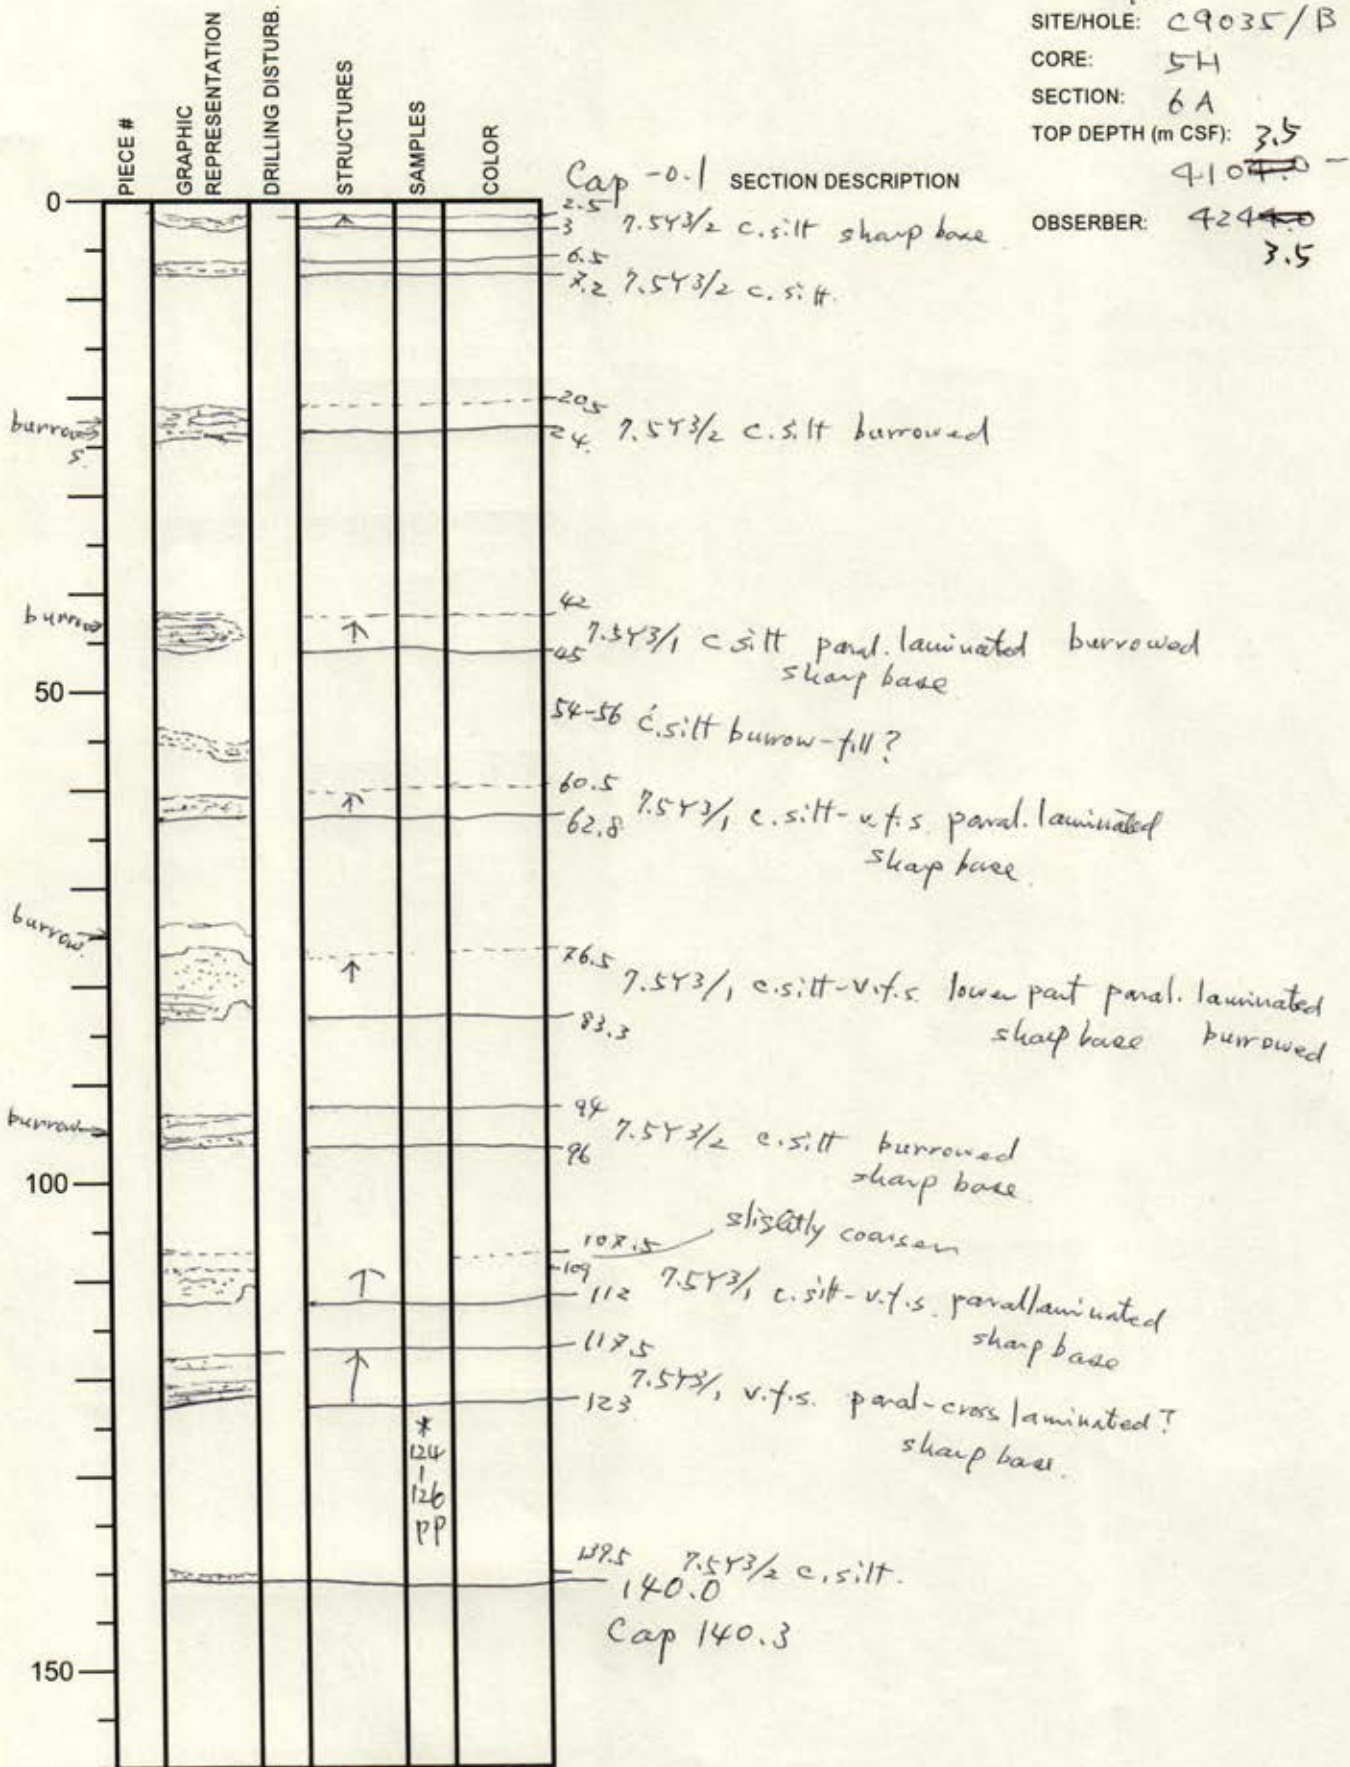 SITE/HOLE: C9035/B
CORE: 5H
SECTION: 6A
TOP DEPTH (m CSF): 3.5
OBSERBER:
3.5
PIECE #
GRAPHIC REPRESENTATION
DRILLING DISTURB.
STRUCTURES
SAMPLES
COLOR
Cap -0.1 SECTION DESCRIPTION
0
2.5
3 7.5Y3/2 c.silt sharp base
6.5
7.2 7.5Y3/2 c.silt.
20.5
burrows.
24. 7.5Y3/2 c.silt burrowed
42
burrow
7.5Y3/1 c silt paral. laminated burrowed
45
sharp base
50
54-56 c.silt burrow-fill?
60.5
7.5Y3/1 c.silt-v.f.s. paral. laminated
62.8
sharp base.
burrow.
76.5
7.5Y3/1 c.silt-v.f.s. lower part paral. laminated
83.3
sharp base burrowed
94
burrow
7.5Y3/2 c.silt burrowed
96
sharp base
100
slightly coarser
107.5
109
7.5Y3/1 c.silt-v.f.s. parallaminated
112
sharp base
117.5
7.5Y3/1 v.f.s. paral-cross laminated?
123
sharp base.
*
124
|
126
PP
139.5 7.5Y3/2 c.silt.
140.0
Cap 140.3
150